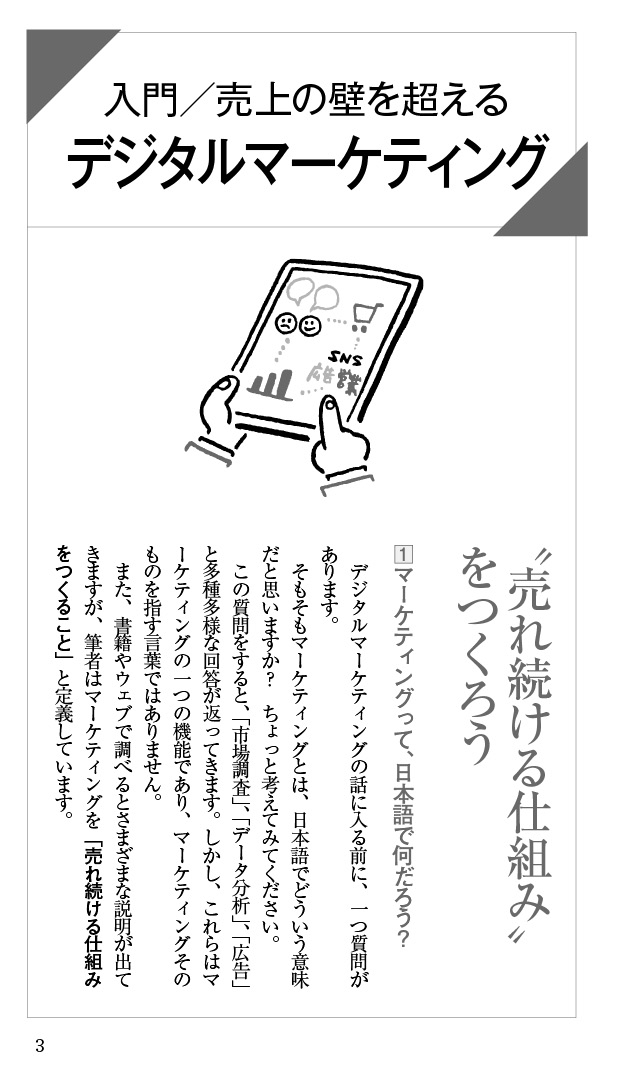 入門／売上の壁を超える
デジタルマーケティング
SNS
広告 営業
〝売れ続ける仕組み〟
をつくろう
1 マーケティングって、日本語で何だろう？
デジタルマーケティングの話に入る前に、一つ質問が
あります。
そもそもマーケティングとは、日本語でどういう意味
だと思いますか？　ちょっと考えてみてください。
この質問をすると、「市場調査」、「データ分析」、「広告」
と多種多様な回答が返ってきます。しかし、これらはマ
ーケティングの一つの機能であり、マーケティングその
ものを指す言葉ではありません。
また、書籍やウェブで調べるとさまざまな説明が出て
きますが、筆者はマーケティングを「売れ続ける仕組み
をつくること」と定義しています。
3